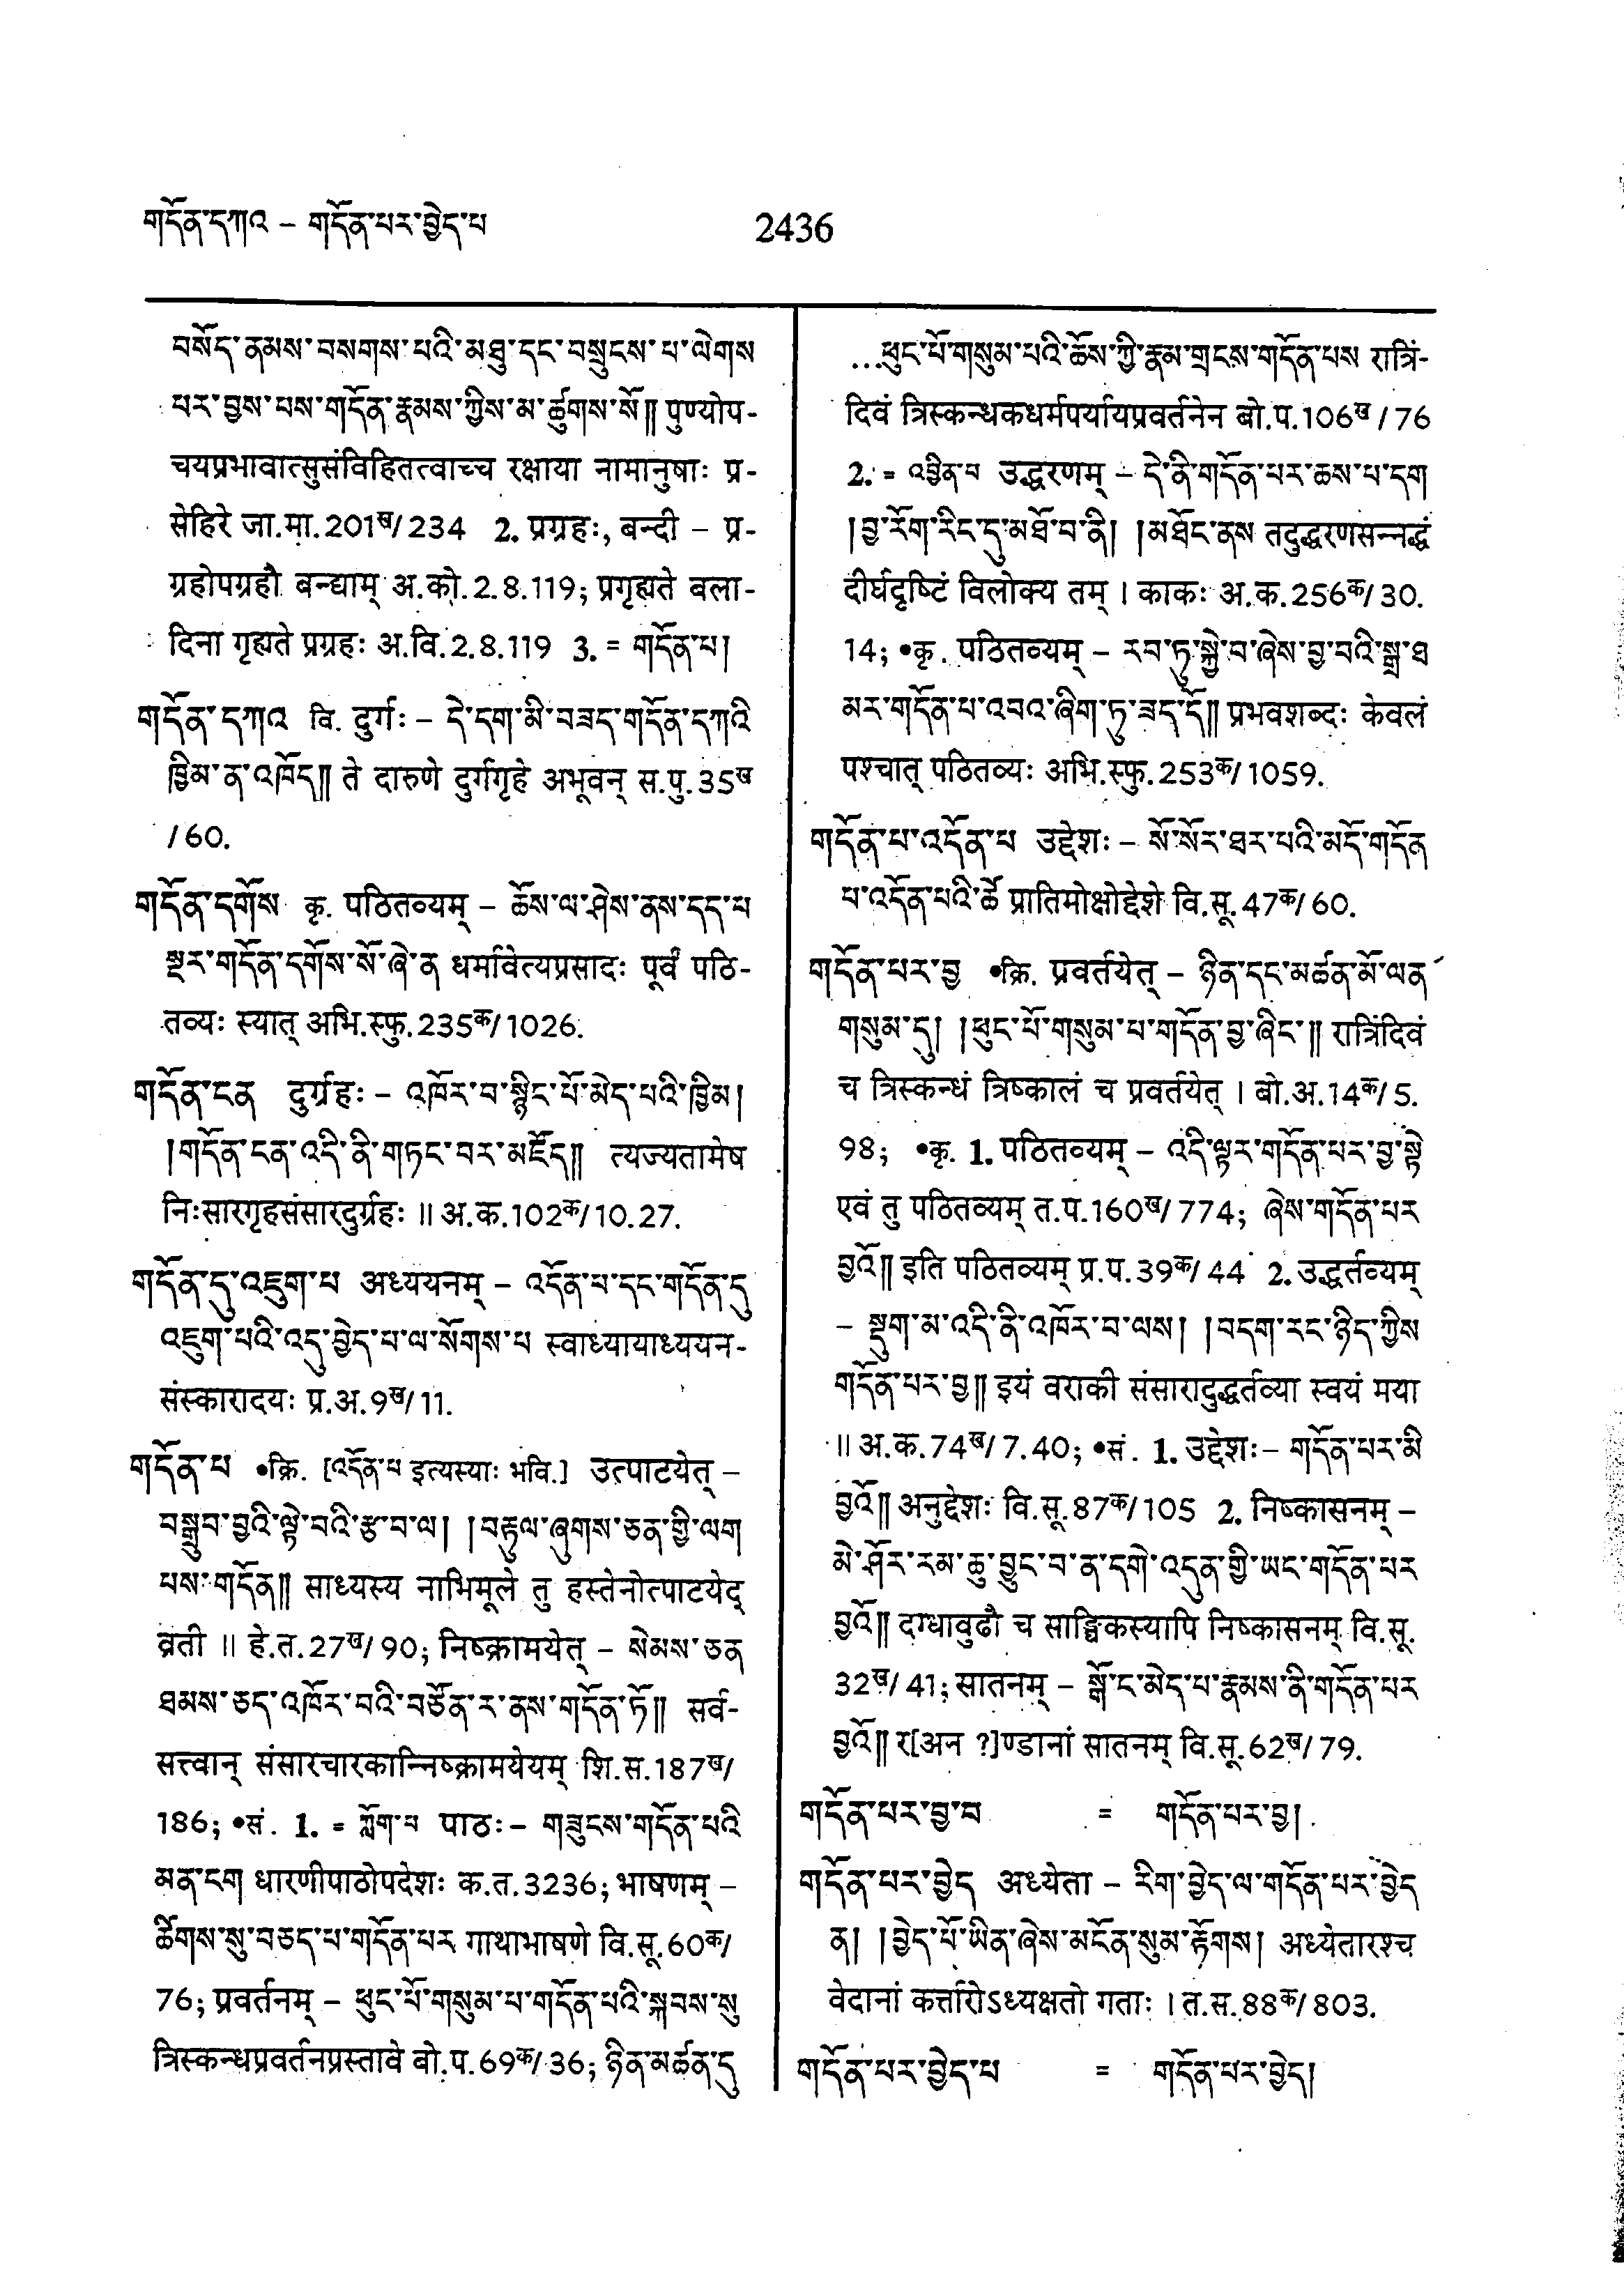 གདོན་དཀའ – གདོན་པར་བྱེད་པ
2436
བསོད་ནམས་བསགས་པའི་མཐུ་དང་བསྲུངས་པ་ལེགས
པར་བྱས་པས་གདོན་རྣམས་ཀྱིས་མ་ཚུགས་སོ༎ पुण्योप-
चयप्रभावात्सुसंविहितत्वाच्च रक्षाया नामानुषाः प्र-
सेहिरे जा.मा.201ख/234 2. प्रग्रहः, बन्दी – प्र-
ग्रहोपग्रहौ बन्द्याम् अ.को.2.8.119; प्रगृह्यते बला-
दिना गृह्यते प्रग्रहः अ.वि.2.8.119 3. = གདོན་པ།
གདོན་དཀའ वि. दुर्गः – དེ་དག་མི་བཟད་གདོན་དཀའི
ཁྱིམ་ན་འཁོད༎ ते दारुणे दुर्गगृहे अभूवन् स.पु.35ख
/60.
གདོན་དགོས कृ. पठितव्यम् – ཆོས་ལ་ཤེས་ནས་དད་པ
སྔར་གདོན་དགོས་སོ་ཞེ་ན धर्मावेत्यप्रसादः पूर्वं पठि-
तव्यः स्यात् अभि.स्फु.235क/1026.
གདོན་ངན दुर्ग्रहः – འཁོར་བ་སྙིང་པོ་མེད་པའི་ཁྱིམ།
།གདོན་ངན་འདི་ནི་གཏང་བར་མཛོད༎ त्यज्यतामेष
निःसारगृहसंसारदुर्ग्रहः ॥ अ.क.102क/10.27.
གདོན་དུ་འཇུག་པ अध्ययनम् – འདོན་པ་དང་གདོན་དུ
འཇུག་པའི་འདུ་བྱེད་པ་ལ་སོགས་པ स्वाध्यायाध्ययन-
संस्कारादयः प्र.अ.9ख/11.
གདོན་པ •क्रि. [འདོན་པ इत्यस्याः भवि.] उत्पाटयेत् –
བསྒྲུབ་བྱའི་ལྟེ་བའི་རྩ་བ་ལ། །བརྟུལ་ཞུགས་ཅན་གྱི་ལག
པས་གདོན༎ साध्यस्य नाभिमूले तु हस्तेनोत्पाटयेद्
व्रती ॥ हे.त.27ख/90; निष्क्रामयेत् – སེམས་ཅན
ཐམས་ཅད་འཁོར་བའི་བཙོན་ར་ནས་གདོན་ཏོ༎ सर्व-
सत्त्वान् संसारचारकान्निष्क्रामयेयम् शि.स.187ख/
186; •सं. 1. = ཀློག་པ पाठः – གཟུངས་གདོན་པའི
མན་ངག धारणीपाठोपदेशः क.त.3236; भाषणम् –
ཚིགས་སུ་བཅད་པ་གདོན་པར गाथाभाषणे वि.सू.60क/
76; प्रवर्तनम् – ཕུང་པོ་གསུམ་པ་གདོན་པའི་སྐབས་སུ
त्रिस्कन्धप्रवर्तनप्रस्तावे बो.प.69क/36; ཉིན་མཚན་དུ
...ཕུང་པོ་གསུམ་པའི་ཆོས་ཀྱི་རྣམ་གྲངས་གདོན་པས रात्रिं-
दिवं त्रिस्कन्धकधर्मपर्यायप्रवर्तनेन बो.प.106ख/76
2. = འབྱིན་པ उद्धरणम् – དེ་ནི་གདོན་པར་ཆས་པ་དག
།བྱ་རོག་རིང་དུ་མཐོ་བ་ནི། །མཐོང་ནས तदुद्धरणसन्नद्धं
दीर्घदृष्टिं विलोक्य तम् । काकः अ.क.256क/30.
14; •कृ. पठितव्यम् – རབ་ཏུ་སྐྱེ་བ་ཞེས་བྱ་བའི་སྒྲ་ཐ
མར་གདོན་པ་འབའ་ཞིག་ཏུ་ཟད་དོ༎ प्रभवशब्दः केवलं
पश्चात् पठितव्यः अभि.स्फु.253क/1059.
གདོན་པ་འདོན་པ उद्देशः – སོ་སོར་ཐར་པའི་མདོ་གདོན
པ་འདོན་པའི་ཚེ प्रातिमोक्षोद्देशे वि.सू.47क/60.
གདོན་པར་བྱ •क्रि. प्रवर्तयेत् – ཉིན་དང་མཚན་མོ་ལན
གསུམ་དུ། །ཕུང་པོ་གསུམ་པ་གདོན་བྱ་ཞིང་༎ रात्रिंदिवं
च त्रिस्कन्धं त्रिष्कालं च प्रवर्तयेत् । बो.अ.14क/5.
98; •कृ. 1. पठितव्यम् – འདི་ལྟར་གདོན་པར་བྱ་སྟེ
एवं तु पठितव्यम् त.प.160ख/774; ཞེས་གདོན་པར
བྱའོ༎ इति पठितव्यम् प्र.प.39क/44 2. उद्धर्तव्यम्
– སྡུག་མ་འདི་ནི་འཁོར་བ་ལས། །བདག་རང་ཉིད་ཀྱིས
གདོན་པར་བྱ༎ इयं वराकी संसारादुद्धर्तव्या स्वयं मया
॥ अ.क.74ख/7.40; •सं. 1. उद्देशः – གདོན་པར་མི
བྱའོ༎ अनुद्देशः वि.सू.87क/105 2. निष्कासनम् –
མེ་ཤོར་རམ་ཆུ་བྱུང་བ་ན་དགེ་འདུན་གྱི་ཡང་གདོན་པར
བྱའོ༎ दग्धावुढौ च साङ्घिकस्यापि निष्कासनम् वि.सू.
32ख/41; सातनम् – སྒོ་ང་མེད་པ་རྣམས་ནི་གདོན་པར
བྱའོ༎ र[अन ?]ण्डानां सातनम् वि.सू.62ख/79.
གདོན་པར་བྱ་བ = གདོན་པར་བྱ།
གདོན་པར་བྱེད अध्येता – རིག་བྱེད་ལ་གདོན་པར་བྱེད
ན། །བྱེད་པོ་ཡིན་ཞེས་མངོན་སུམ་རྟོགས། अध्येतारश्च
वेदानां कर्त्तारोऽध्यक्षतो गताः । त.स.88क/803.
གདོན་པར་བྱེད་པ = གདོན་པར་བྱེད།